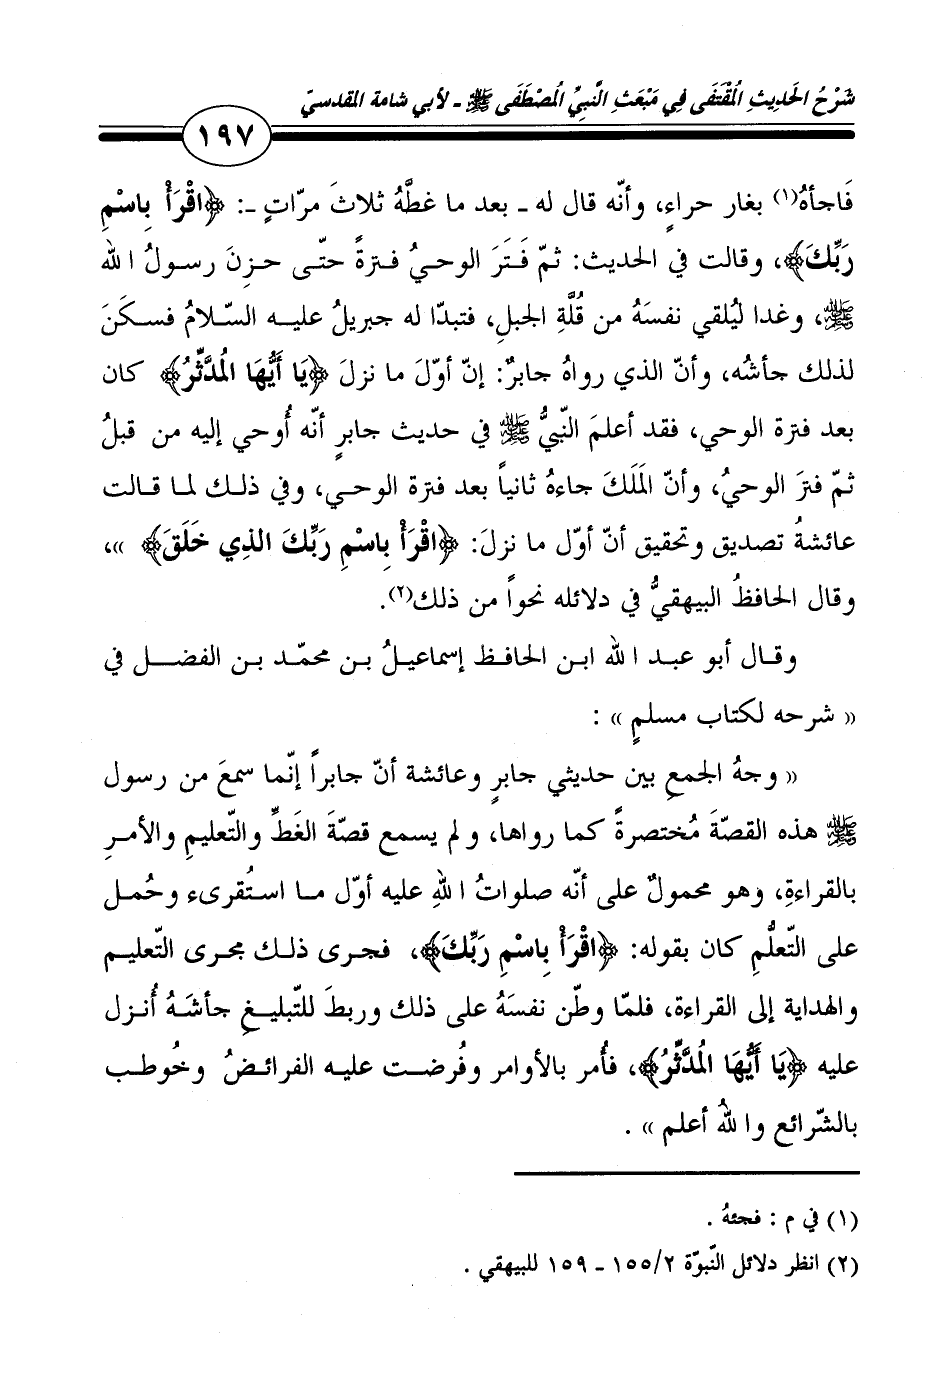 شَرْحُ الحَدِيثِ المُقْتَفَى فِي مَبْعَثِ النَّبِيِّ المُصْطَفَى ﷺ ـ لأبي شامة المقدسيّ
١٩٧
فَاجأهُ(١) بغار حراءٍ، وأنّه قال له ـ بعد ما غطَّهُ ثلاثَ مرّاتٍ ـ: ﴿اقْرَأْ بِاسْمِ
رَبِّكَ﴾، وقالت في الحديث: ثمّ فَتَرَ الوحيُ فترةً حتّى حزِنَ رسولُ الله
ﷺ، وغدا ليُلقي نفسَهُ من قُلَّةِ الجبلِ، فتبدّا له جبريلُ عليه السّلامُ فسكَنَ
لذلك جأشُه، وأنّ الذي رواهُ جابرٌ: إنّ أوّلَ ما نزلَ ﴿يَا أَيُّهَا المُدَّثِّرُ﴾ كان
بعد فترة الوحي، فقد أعلمَ النّبيُّ ﷺ في حديث جابرٍ أنّه أُوحي إليه من قبلُ
ثمّ فترَ الوحيُ، وأنّ المَلَكَ جاءهُ ثانياً بعد فترة الوحي، وفي ذلك لما قالت
عائشةُ تصديق وتحقيق أنّ أوّل ما نزلَ: ﴿اقْرَأْ بِاسْمِ رَبِّكَ الذِي خَلَقَ﴾ »،
وقال الحافظُ البيهقيُّ في دلائله نحواً من ذلك(٢).
وقال أبو عبد الله ابن الحافظ إسماعيلُ بن محمّد بن الفضل في
« شرحه لكتاب مسلمٍ » :
« وجهُ الجمعِ بين حديثي جابرٍ وعائشة أنّ جابراً إنّما سمعَ من رسول
ﷺ هذه القصّةَ مُختصرةً كما رواها، ولم يسمع قصّةَ الغَطِّ والتّعليمِ والأمرِ
بالقراءةِ، وهو محمولٌ على أنّه صلواتُ اللهِ عليه أوّل ما استُقرىء وحُمل
على التّعلُّمِ كان بقوله: ﴿اقْرَأْ بِاسْمِ رَبِّكَ﴾، فجرى ذلك مجرى التّعليم
والهداية إلى القراءة، فلمّا وطّن نفسَهُ على ذلك وربطَ للتّبليغِ جأشَهُ أُنزل
عليه ﴿يَا أَيُّهَا المُدَّثِّرُ﴾، فأُمر بالأوامر وفُرضت عليه الفرائضُ وخُوطب
بالشّرائع واللهُ أعلم » .
(١) في م : فجئهُ .
(٢) انظر دلائل النّبوّة ١٥٥/٢ ـ ١٥٩ للبيهقي .